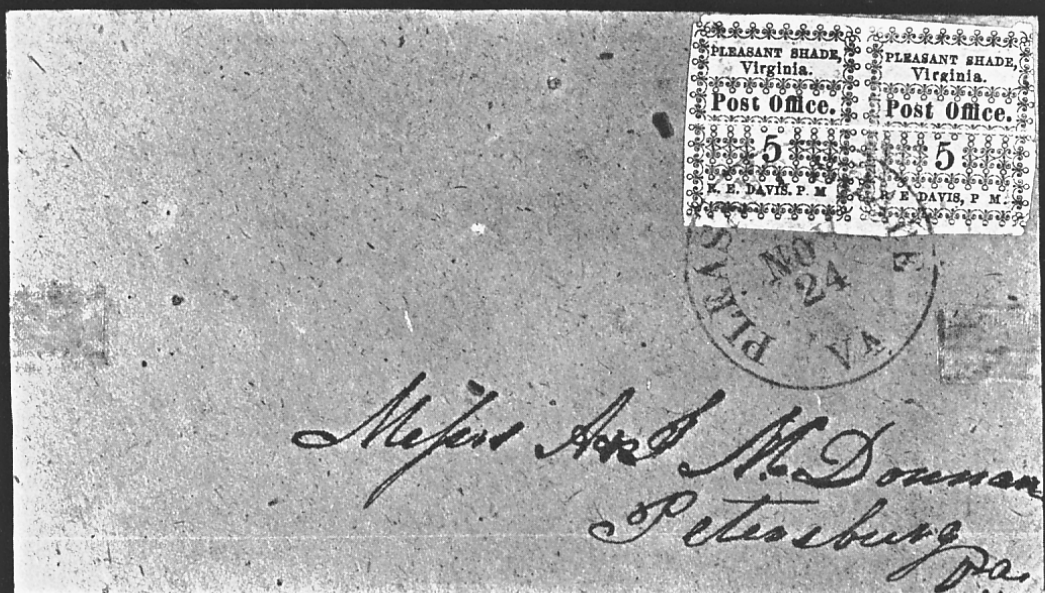 PLEASANT SHADE,
Virginia.
Post Office.
5
R. E. DAVIS. P. M
PLEASANT SHADE,
Virginia.
Post Office.
5
R E DAVIS, P M.
PLEAS
E
VA
NO
24
Messrs A & J McDonnan
Petersburg
Va.